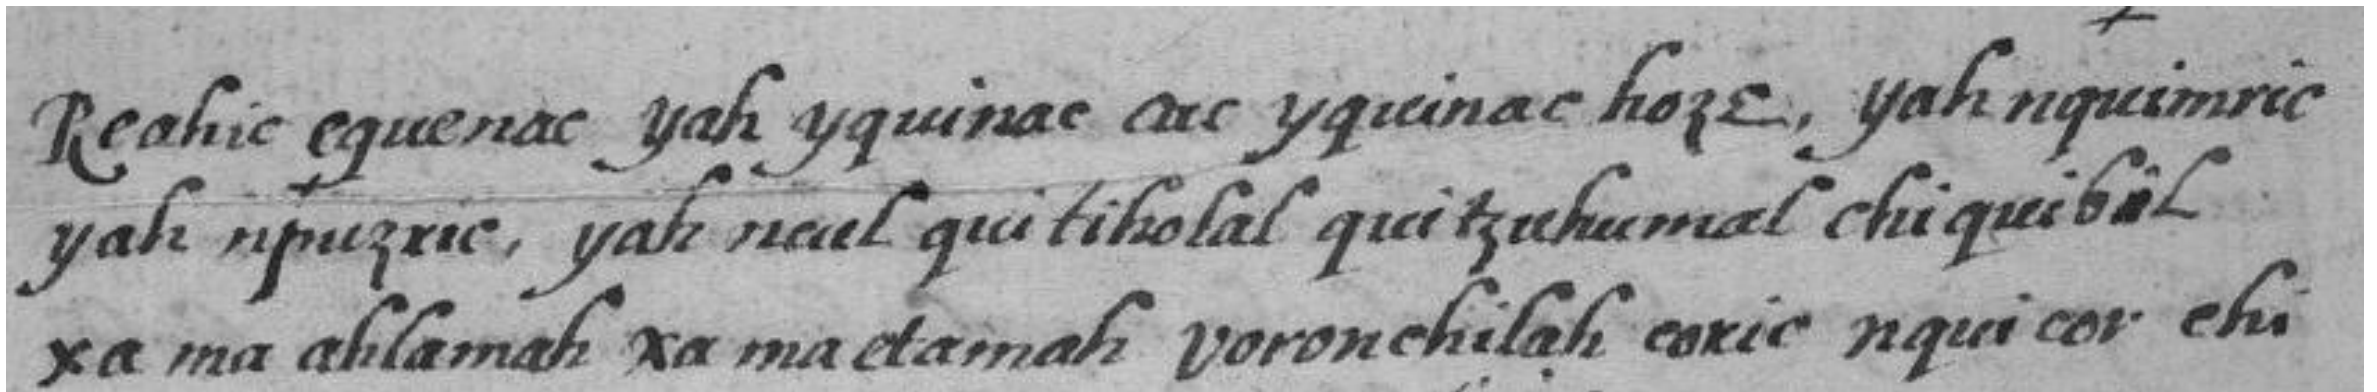 Reahic equenac yah yquinac cac yquinac hozɛ, yah nquimric
yah npuzric, yah ncul qui tiholal qui tzuhumal chi quibil
xa ma ahlamah xa ma etamah voron chilah coric nqui cor chi